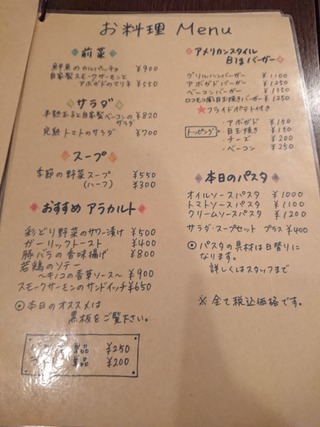 お料理 Menu
前菜
鮮魚のカルパッチョ ¥900
自家製スモークサーモンと
アボカドのマリネ ¥550
サラダ
半熟たまごと自家製ベーコンの
サラダ ¥820
完熟トマトのサラダ ¥700
スープ
季節の野菜スープ ¥550
(ハーフ) ¥300
おすすめ アラカルト
彩どり野菜のサワー漬け ¥500
ガーリックトースト ¥400
豚バラの香味揚げ ¥800
若鶏のソテー
~キノコの香草ソース~ ¥900
スモークサーモンのサンドイッチ ¥650
◎本日のオススメは
黒板をご覧下さい。
単品 ¥250
単品 ¥200
アメリカンスタイル
バーガー
グリルハンバーガー ¥1100
アボカドバーガー ¥1250
ベーコンバーガー ¥1350
ロコモコ風目玉焼きバーガー ¥1250
★フライドポテト付き
トッピング
・アボカド ¥150
・目玉焼き ¥150
・チーズ ¥200
・ベーコン ¥250
本日のパスタ
オイルソースパスタ ¥1000
トマトソースパスタ ¥1000
クリームソースパスタ ¥1200
サラダ・スープセット プラス ¥400
◎パスタの具材は日替りに
なります。
詳しくはスタッフまで
※全て税込価格です。